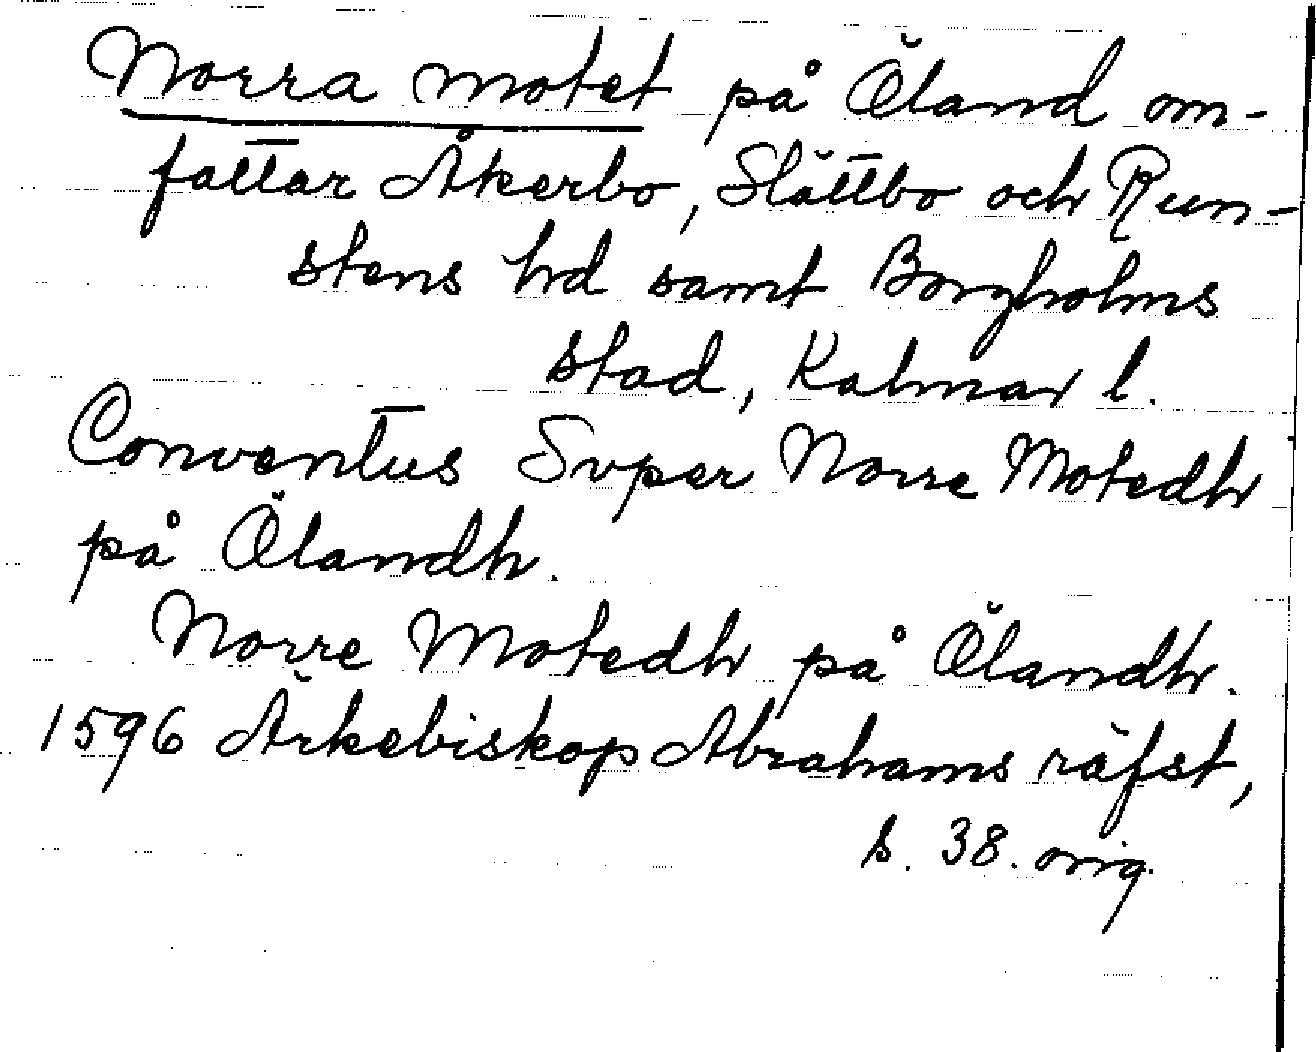 Norra motet på Öland om-
fattar Åkerbo, Slättbo och Run-
stens hd samt Borgholms
stad, Kalmar l.
Conventus Super Norre Motedh
på Ölandh.
Norre Motedh på Ölandh.
1596 Ärkebiskop Abrahams räfst,
s. 38. orig.